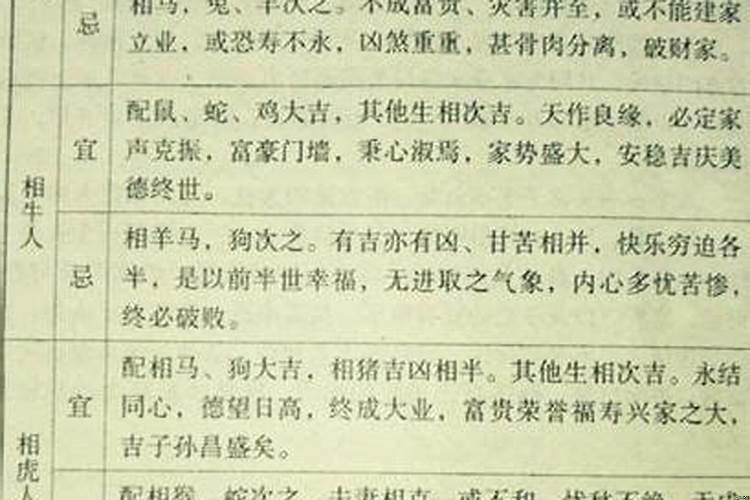 忌
相马，兔、羊次之。不成富贵、灾害并至，或不能建家
立业，或恐寿不永，凶煞重重，甚骨肉分离，破财家。
相牛人
宜
配鼠、蛇、鸡大吉，其他生相次吉。天作良缘，必定家
声克振，富豪门墙，秉心淑焉，家势盛大，安稳吉庆美
德终世。
忌
相羊马，狗次之。有吉亦有凶、甘苦相并，快乐穷迫各
半，是以前半世幸福，无进取之气象，内心多忧苦惨，
终必破败。
相虎人
宜
配相马、狗大吉，相猪吉凶相半。其他生相次吉。永结
同心，德望日高，终成大业，富贵荣誉福寿兴家之大，
吉子孙昌盛矣。
配相猴，蛇次之，夫妻相克，或不和，忧愁不